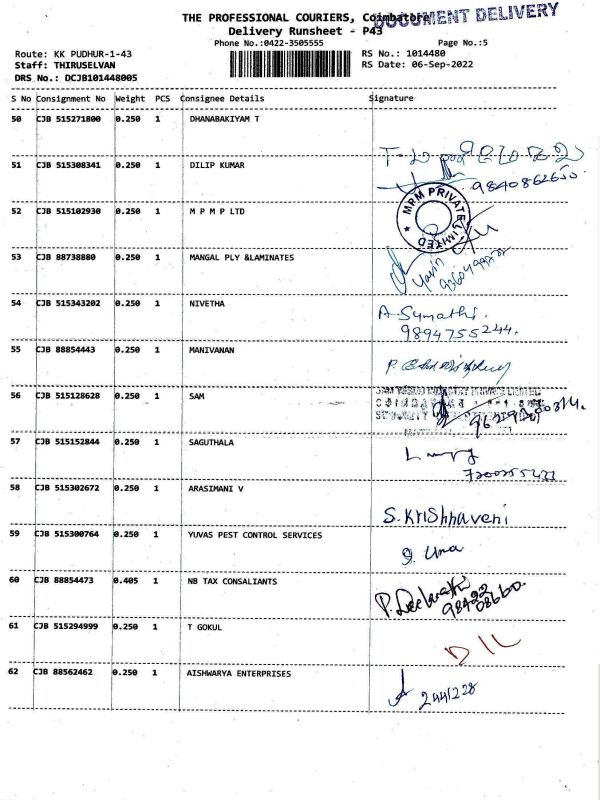 THE PROFESSIONAL COURIERS, Coimbatore
DOCUMENT DELIVERY
Delivery Runsheet - P43
Phone No.:0422-3505555
Page No.:5
Route: KK PUDHUR-1-43
RS No.: 1014480
Staff: THIRUSELVAN
RS Date: 06-Sep-2022
DRS No.: DCJB101448005
S No Consignment No Weight PCS Consignee Details Signature
50 CJB 515271800 0.250 1 DHANABAKIYAM T
51 CJB 515308341 0.250 1 DILIP KUMAR
9840862650.
52 CJB 515102930 0.250 1 M P M P LTD
MPM PRIVATE LIMITED
53 CJB 88738880 0.250 1 MANGAL PLY &LAMINATES
54 CJB 515343202 0.250 1 NIVETHA A-Sumathi.
9894755244.
55 CJB 88854443 0.250 1 MANIVANAN
56 CJB 515128628 0.250 1 SAM
57 CJB 515152844 0.250 1 SAGUTHALA
58 CJB 515302672 0.250 1 ARASIMANI V
S.Krishnaveni
59 CJB 515300764 0.250 1 YUVAS PEST CONTROL SERVICES
60 CJB 88854473 0.405 1 NB TAX CONSALIANTS
61 CJB 515294999 0.250 1 T GOKUL
62 CJB 88562462 0.250 1 AISHWARYA ENTERPRISES
2441228